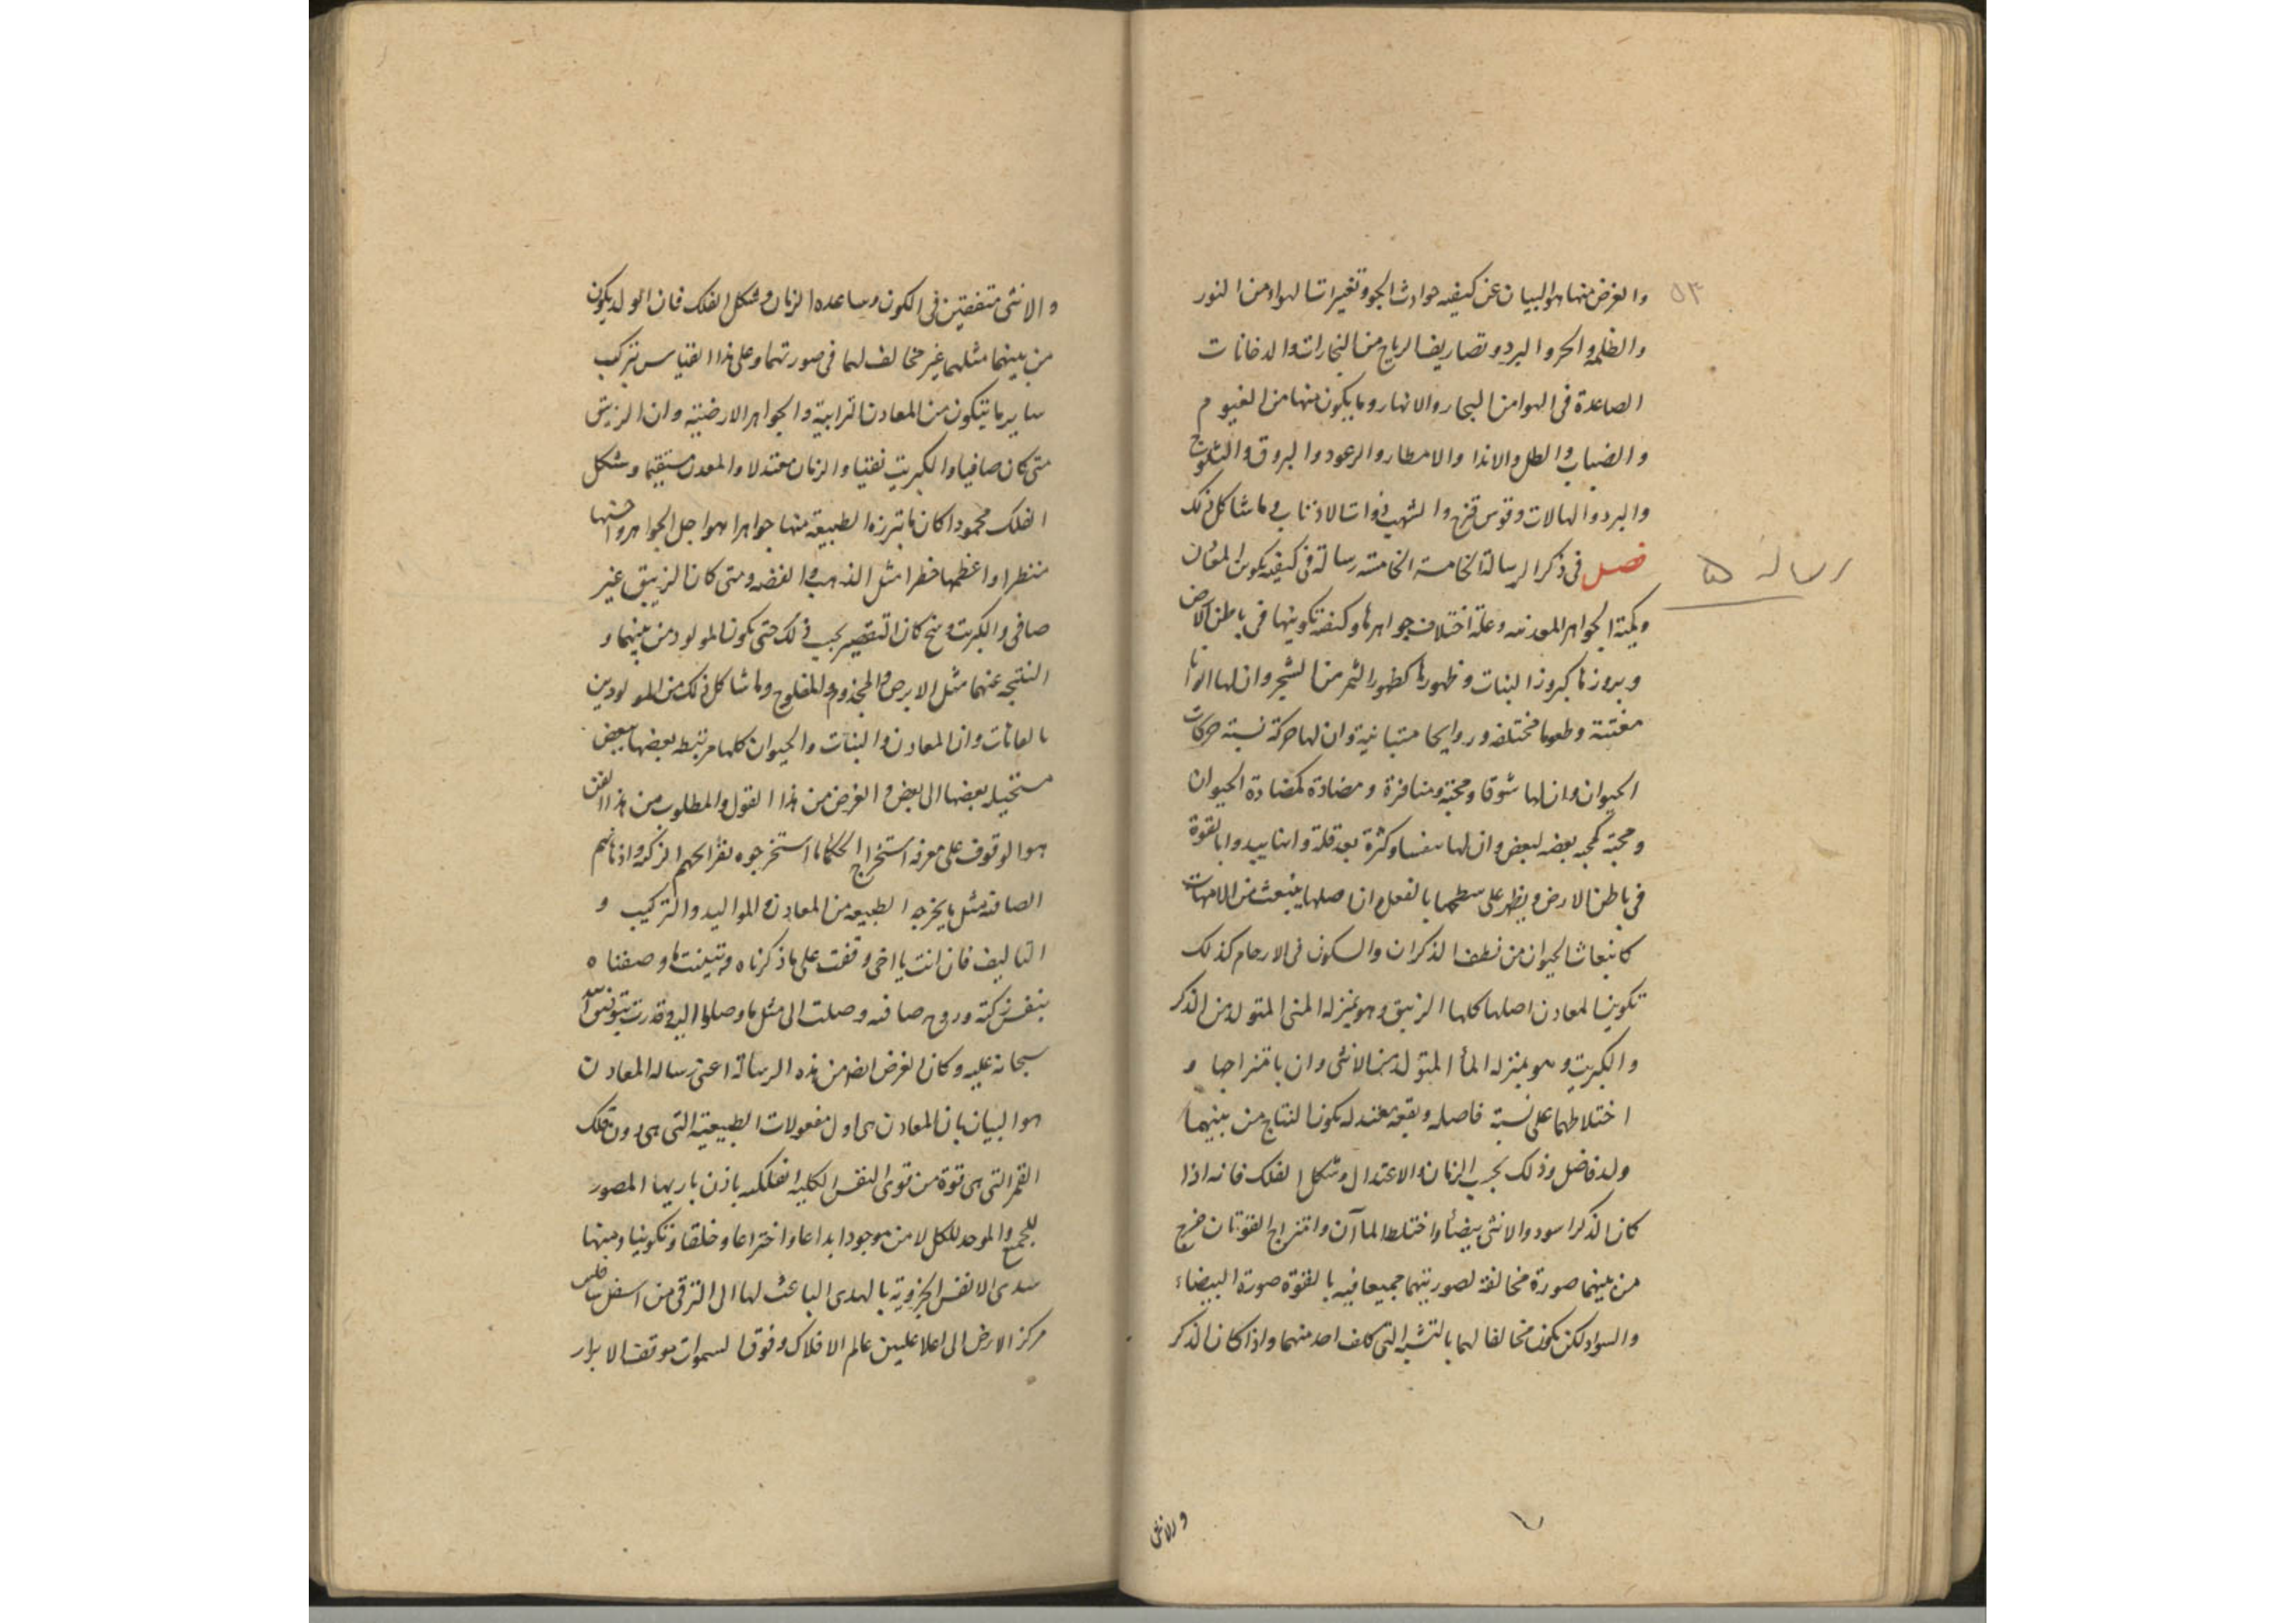 ٥٣
والغرض منها هو البيان عن كيفيه حوادث الجو وتغيرات الهواء من النور
والظلمة والحر والبرد وتصاريف الرياح من البخارات والدخانات
الصاعدة فى الهوا من البحار والانهار وما يكون منها من الغيوم
والضباب والطل والاندا والامطار والرعود والبروق والثلوج
والبرد والهالات وقوس قزح والشهب وذوات الاذناب وما شاكل ذلك
فصل فى ذكر الرسالة الخامسة الخامسة رسالة فى كيفيه تكوين المعادن
رساله ۵
وكمية الجواهر المعدنيه وعلة اختلاف جواهرها وكيفية تكوينها فى باطن الارض
وبروزها كبروز النبات وظهورها كظهور الثمر من الشجر وان لها الوانا
مفتنة وطعوما مختلفه وروايحا متباينية وان لها حركة نسبة حركات
الحيوان وان لها شوقا ومحبة ومنافرة ومضادة كمضادة الحيوان
ومحبة كمحبه بعضه لبعض وان لها نفسا وكثرة بعد قلة بالقوة
فى باطن الارض ويظهر على سطحها بالفعل وان اصلها ينبعث من الامهات
كانبعاث الحيوان من نطف الذكران والسكون فى الارحام كذلك
تكوين المعادن اصلها كلها الزيبق وهو بمنزله المنى المتولد من الذكر
والكبريت وهو بمنزله الماء المتولد من الانثى وان بامتزاجها و
اختلاطهما على نسبة فاصله وبقعة معتدله يكون النتاج من بينهما
ولد فاضل وذلك بحسب الزمان والاعتدال وشكل الفلك فانه اذا
كان الذكر اسود والانثى بيضاء واختلط الماآن وامتزاج القوتان خرج
من بينهما صورة مخالفة لصورتيهما جميعا فيه بالقوة صورة البيضاء
والسواد لكن يكون مخالفا لهما بالتى كلف احد منهما واذا كان الذكر
والانثى
والانثى متفقتين فى الكون وساعده الزمان وشكل الفلك فان الولد يكون
من بينهما مثلهما غير مخالف لهما فى صورتهما وعلى هذا القياس تركب
ساير ما يتكون من المعادن الترابية والجواهر الارضية وان الزيبق
متى كان صافيا والكبريت نقيا والزمان معتدلا والمعدن مستقيما وشكل
الفلك محمودا كان ما تبرزه الطبيعة منها جواهرا هو اجل الجواهر واحسنها
منظرا واعظمها خطرا مثل الذهب والفضه ومتى كان الزيبق غير
صافى والكبريت وسخ كان التقصير بحسب ذلك حتى يكون المولود من بينهما و
النتيجه عنهما مثل الابرص والمجذوم والمفلوج وما شاكل ذلك من المولودين
بالعاهات وان المعادن والنبات والحيوان كلها مرتبطه بعضها ببعض
مستحيله بعضها الى بعض والغرض من هذا القول والمطلوب من هذا الفن
هو الوقوف على معرفه استخراج الحكماء ما استخرجوه بقرائحهم الزكيه واذهانهم
الصافيه مثل ما يخرجه الطبيعه من المعادن والمواليد والتركيب و
التاليف فان انت يا اخى وقفت على ما ذكرناه وتبينت ما وصفناه
بنفس زكية وروح صافيه وصلت الى مثل ما وصلوا اليه وقدرت بتوفيق الله
سبحانه عليه وكان الغرض ايضا من هذه الرسالة اعنى رساله المعادن
هو البيان بان المعادن هى اول مفعولات الطبيعية التى هى دون فلك
القمر التى هى قوة من قوى النفس الكليه الفلكيه باذن باريها المصور
للجميع والموجد للكل لا من موجود ابداعا واختراعا وخلقا وتكوينا ومنها
تبتدى الانفس الجزوية بالهدى الباعث لها الى الترقى من اسفل سافلين
مركز الارض الى اعلا عليين عالم الافلاك وفوق السموات موقف الابرار